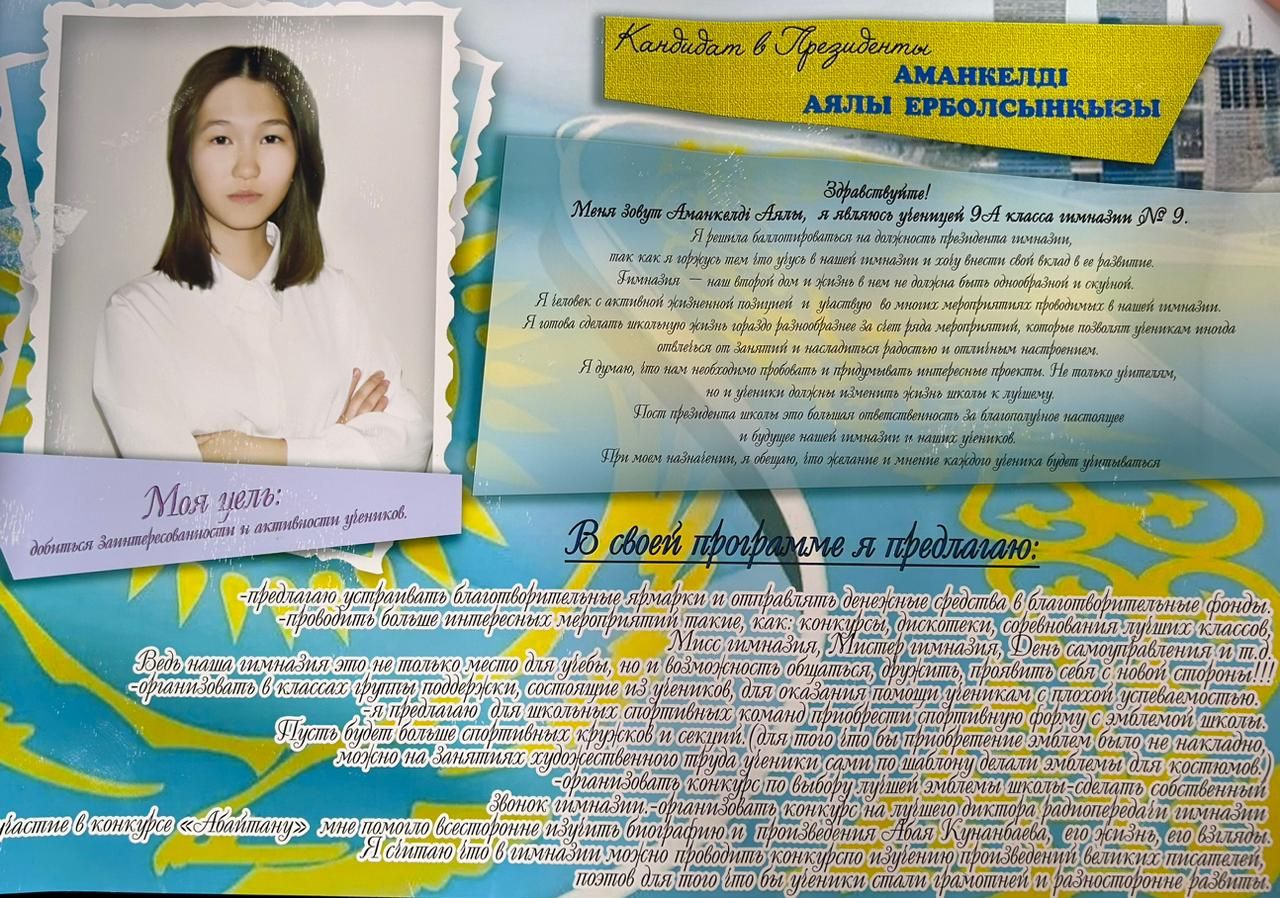 Кандидат в Президенты
АМАНКЕЛДІ
АЯЛЫ ЕРБОЛСЫНҚЫЗЫ
Здравствуйте!
Меня зовут Аманкелді Аялы, я являюсь ученицей 9А класса гимназии № 9.
Я решила баллотироваться на должность президента гимназии,
так как я горжусь тем что учусь в нашей гимназии и хочу внести свой вклад в ее развитие.
Гимназия — наш второй дом и жизнь в нем не должна быть однообразной и скучной.
Я человек с активной жизненной позицией и участвую во многих мероприятиях проводимых в нашей гимназии.
Я готова сделать школьную жизнь гораздо разнообразнее за счет ряда мероприятий, которые позволят ученикам иногда
отвлечься от занятий и насладиться радостью и отличным настроением.
Я думаю, что нам необходимо пробовать и придумывать интересные проекты. Не только учителям,
но и ученики должны изменить жизнь школы к лучшему.
Пост президента школы это большая ответственность за благополучное настоящее
и будущее нашей гимназии и наших учеников.
При моем назначении, я обещаю, что желание и мнение каждого ученика будет учитываться
Моя цель:
добиться заинтересованности и активности учеников.
В своей программе я предлагаю:
-предлагаю устраивать благотворительные ярмарки и отправлять денежные средства в благотворительные фонды.
-проводить больше интересных мероприятий такие, как: конкурсы, дискотеки, соревнования лучших классов,
Мисс гимназия, Мистер гимназия, День самоуправления и т.д.
Ведь наша гимназия это не только место для учебы, но и возможность общаться, дружить, проявить себя с новой стороны!!!
-организовать в классах группы поддержки, состоящие из учеников, для оказания помощи ученикам с плохой успеваемостью.
-я предлагаю для школьных спортивных команд приобрести спортивную форму с эмблемой школы.
Пусть будет больше спортивных кружков и секций. (для того что бы приобретение эмблем было не накладно,
можно на занятиях художественного труда ученики сами по шаблону делали эмблемы для костюмов.)
-организовать конкурс по выбору лучшей эмблемы школы-сделать собственный
звонок гимназии.-организовать конкурс на лучшего диктора радиопередачи гимназии
участие в конкурсе «Абайтану» мне помогло всесторонне изучить биографию и произведения Абая Кунанбаева, его жизнь, его взгляды.
Я считаю что в гимназии можно проводить конкурспо изучению произведений великих писателей,
поэтов для того что бы ученики стали грамотней и разносторонне развиты.